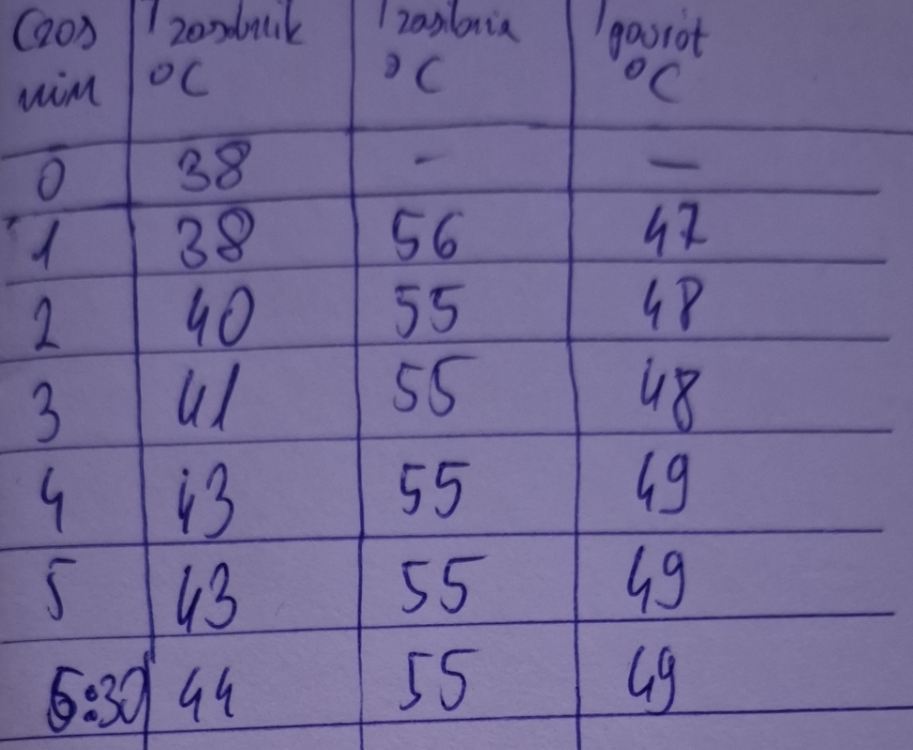 Czas min T zasobnik °C T zasilania °C T powrót °C
0 38 - —
1 38 56 47
2 40 55 48
3 41 55 48
4 43 55 49
5 43 55 49
:30 44 55 49